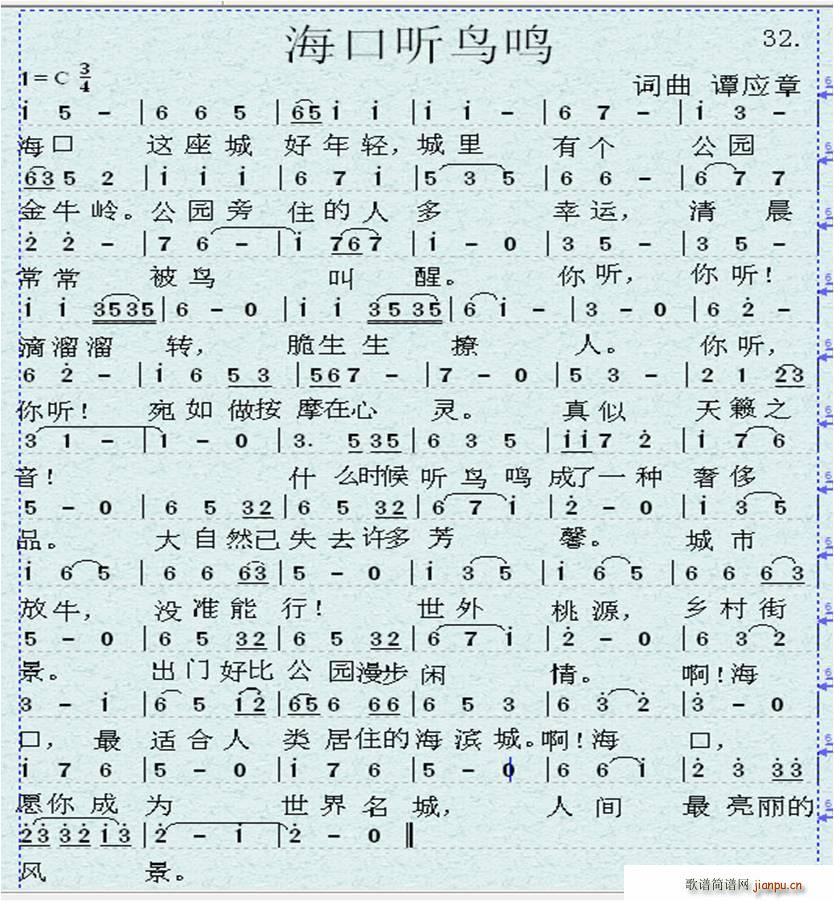 海口听鸟鸣
32.
1=C 3/4
词曲 谭应章
i 5 - | 6 6 5 | 65 i i | i i - | 6 7 - | i 3 -
海口 这座城 好年轻,城里 有个 公园
63 5 2 | i i i | 6 7 i | 5 3 5 | 6 6 - | 6 7 7
金牛岭。公园旁 住的人多 幸运, 清晨
2̇ 2̇ - | 7 6 - | i 767 | i - 0 | 3 5 - | 3 5 -
常常 被鸟 叫 醒。 你听, 你听!
i i 3535 | 6 - 0 | i i 3535 | 6 i - | 3 - 0 | 6 2̇ -
滴溜溜 转, 脆生生 撩 人。 你听,
6 2̇ - | i 6 53 | 567 - | 7 - 0 | 5 3 - | 2 1 23
你听! 宛如做按摩在心 灵。 真似 天籁之
3 1 - | 1 - 0 | 3. 535 | 6 3 5 | ii7 2̇ | i 7 6
音! 什么时候听鸟鸣成了一种奢侈
5 - 0 | 6 5 32 | 6 5 32 | 6 7 i | 2̇ - 0 | i 3 5
品。 大自然已失去许多芳 馨。 城市
i 6 5 | 6 6 63 | 5 - 0 | i 3 5 | i 6 5 | 6 6 63
放牛, 没准能 行! 世外 桃源, 乡村街
5 - 0 | 6 5 32 | 6 5 32 | 6 7 i | 2̇ - 0 | 6 3 2
景。 出门好比公园漫步闲 情。 啊!海
3 - i | 6 5 i2̇ | 656 66 | 6 5 3 | 6 3̇ 2̇ | 3̇ - 0
口, 最 适合人 类居住的海滨城。啊!海 口,
i 7 6 | 5 - 0 | i 7 6 | 5 - 0 | 6 6 i | 2̇ 3̇ 3̇3̇
愿你成 为 世界名 城, 人间 最亮丽的
2̇3̇ 3̇2̇ i3̇ | 2̇ - i | 2̇ - 0
风 景。
歌谱简谱网 jianpu.cn